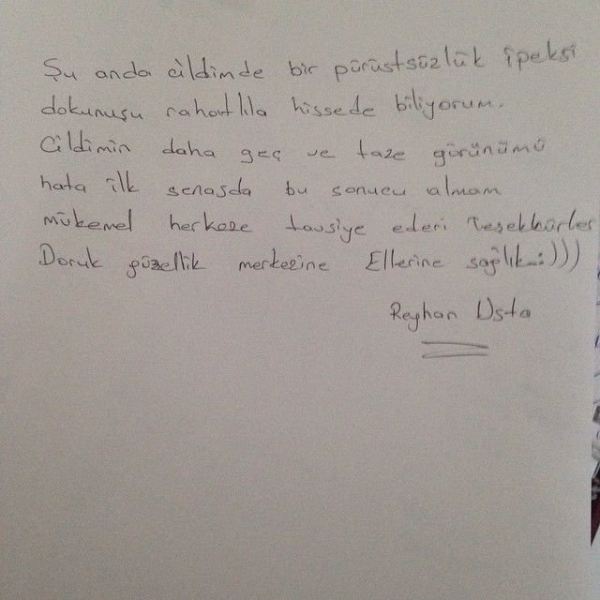 Şu anda cildimde bir pürüstsüzlük ipeksi
dokunuşu rahatlıla hissede biliyorum.
Cildimin daha geç ve taze görünümü
hata ilk senasda bu sonucu almam
mükemel herkeze tavsiye ederi Teşekkürler
Doruk güzellik merkezine Ellerine sağlık..:)))
Reyhan Usta